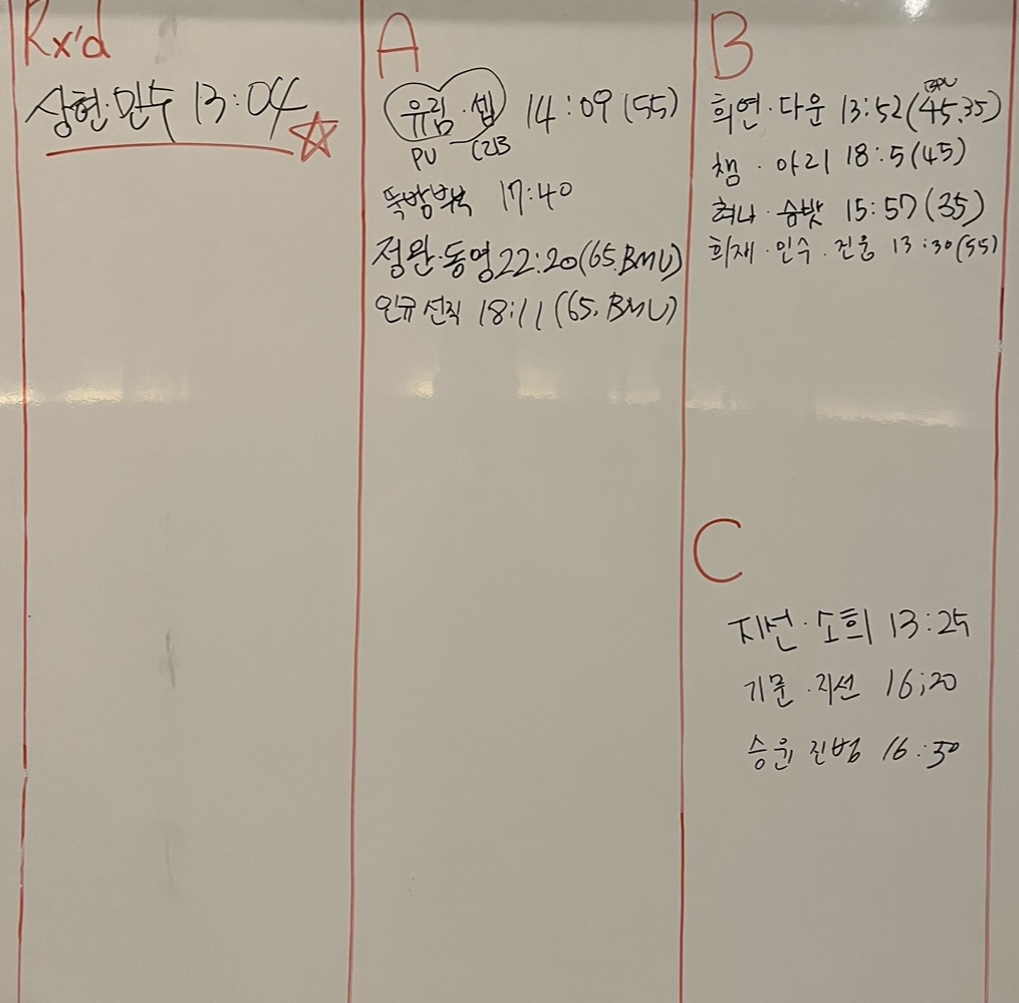 Rx'd
상현·민수 13:04
A
유림·셉 14:09 (55)
PU C2B
뚝방부부 17:40
정완·동영 22:20 (65.BMU)
인규 선직 18:11 (65. BMU)
B
희연·다운 13:52 (45.35)
챔·아리 18:5 (45)
혀나·숨밧 15:57 (35)
희재·인수·진웅 13:30 (55)
C
지선·소희 13:25
기문·지선 16;20
승윤 진범 16:30